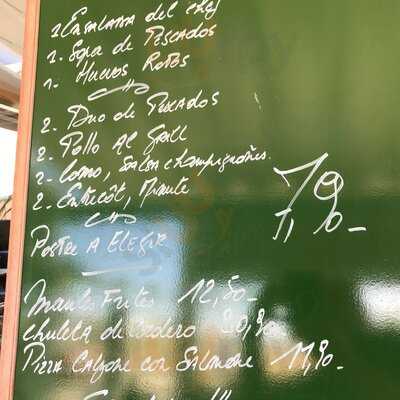 1 Ensalada del chef
1. Sopa de Pescados
1. Huevos Rotos
2. Duo de Pescados
2. Pollo Al Grill
2. Lomo, Salsa champignoñes.
2. Entrecôt, Minute
Postre A Elegir
Frites 12,50-
chuleta de cordero
Pizza Calzone con Salmone 11,90-